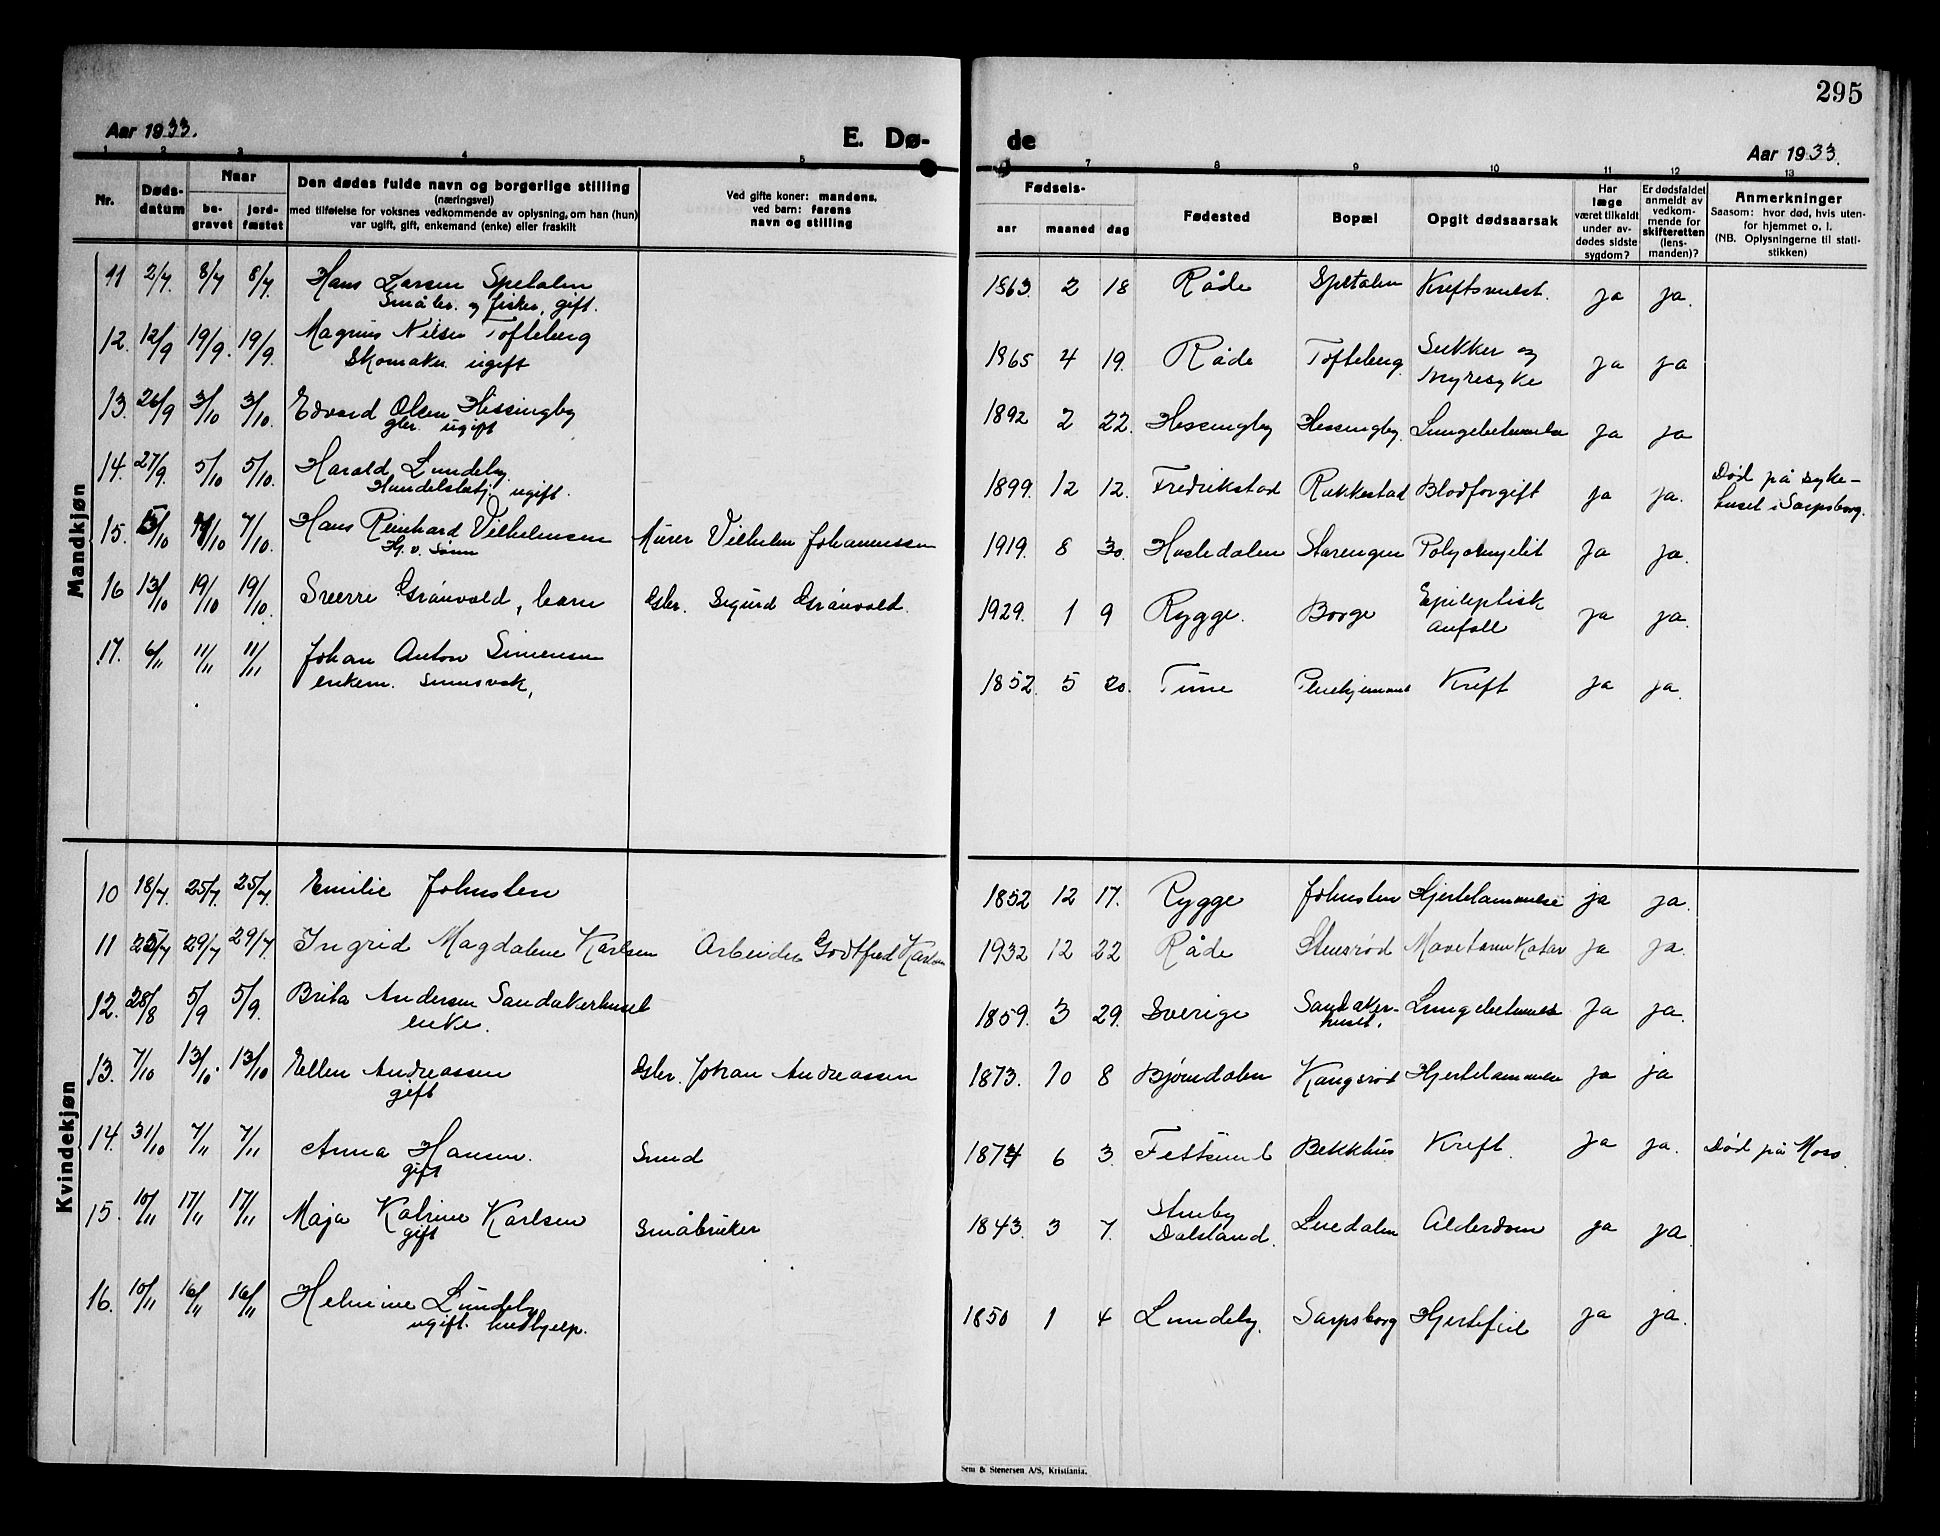 295
Aar 1933.
E. Dø-
de
Aar 1933.
1 2 3 4 5 7 8 9 10 11 12 13
Nr.
Døds-
datum
Naar
be-
gravet
jord-
fæstet
Den dødes fulde navn og borgerlige stilling
(næringsvei)
med tilføielse for voksnes vedkommende av oplysning, om han (hun)
var ugift, gift, enkemand (enke) eller fraskilt
Ved gifte koner: mandens,
ved barn: farens
navn og stilling
Fødsels-
aar maaned dag
Fødested
Bopæl
Opgit dødsaarsak
Har
læge
været tilkaldt
under av-
dødes sidste
sygdom?
Er dødsfaldet
anmeldt av
vedkom-
mende for
skifteretten
(lens-
manden)?
Anmerkninger
Saasom: hvor død, hvis uten-
for hjemmet o. l.
(NB. Oplysningerne til stati-
stikken)
Mandkjøn
11 2/7. 8/7 8/7. Hans Larsen Spetalen 1863. 2 18 Råde Spetalen Kreftsvulst. ja ja.
Småbr. og fisker, gift.
12. 12/9 19/9. 19/9. Magnus Nilsen Tofteberg 1865 4 19. Råde Tofteberg Sukker og ja ja
Skomaker ugift nyresyke
13. 26/9 3/10 3/10. Edvard Olsen Hissingby 1892 2 22. Hissingby Hissingby. Lungebetennelse ja ja
gbr. ugift
14. 27/9. 5/10 5/10. Harald Lundeby 1899. 12 12. Fredrikstad Rakkestad Blodforgift ja ja. Død på syke-
Handelsbetj. ugift. huset i Sarpsborg.
15. 5/10 7/10 7/10. Hans Reinhard Vilhelmsen Murer Vilhelm Johannessen 1919. 8 30. Husledalen Starengen Polyomyelit ja ja.
Hj.v. sønn
16 13/10 19/10 19/10. Sverre Grönvold, barn Gbr. Sigurd Grönvold. 1929. 1 9 Rygge. Borge Epileptisk ja ja.
anfall
17. 6/11 11/11 11/11 Johan Anton Simensen 1852. 5 20. Tune Pleiehjemmet Kreft ja ja.
enkem. sinnsvak,
Kvindekjøn
10 18/7 25/7. 25/7. Emilie Johnsten 1852 12 17. Rygge Johnsten Hjertelammelse ja ja.
11 25/7 29/7 29/7. Ingrid Magdalene Karlsen Arbeider Godtfred Karlsen 1932 12 22 Råde Stensrød Mavetarm Katar ja ja.
12. 28/8 5/9 5/9. Brita Andersen Sandakerhuset 1859. 3 29. Sverige Sandaker- Lungebetennelse ja ja.
enke. huset.
13. 7/10 13/10. 13/10 Ellen Andreassen Gbr. Johan Andreassen 1873. 10 8 Bjørndalen Kangsrød Hjertelammelse ja ja
gift
14. 31/10 7/11 7/11 Anna Hansen. Smed 1874 6 3. Fettsund Bekkhus Kreft. ja ja. Død på Moss.
gift
15. 10/11 17/11 17/11 Maja Katrine Karlsen Småbruker 1843. 3 7. Dalsland. Luedalen Alderdom ja ja.
gift
16. 10/11 16/11 16/11 Helmine Lundeby 1850 1 4 Lundeby. Sarpsborg Hjertefeil ja ja.
ugift. hushjelp.
Sem & Stenersen A/S, Kristiania.